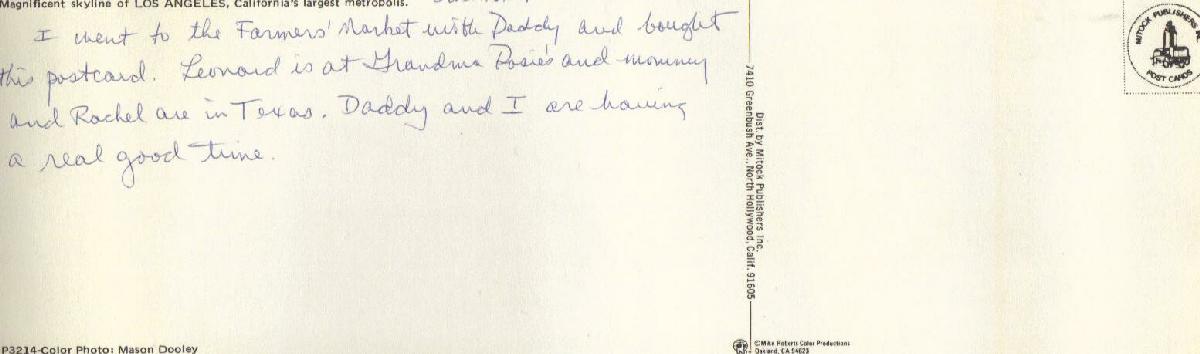 Magnificent skyline of LOS ANGELES, California's largest metropolis.
I went to the Farmers' Market with Daddy and bought
this postcard. Leonard is at Grandma Rosie's and mommy
and Rachel are in Texas. Daddy and I are having
a real good time.
P3214-Color Photo: Mason Dooley
Dist. by Mitock Publishers Inc.
7410 Greenbush Ave., North Hollywood, Calif. 91605
MITOCK PUBLISHERS
POST CARDS
©Mike Roberts Color Productions
Oakland, CA 94623